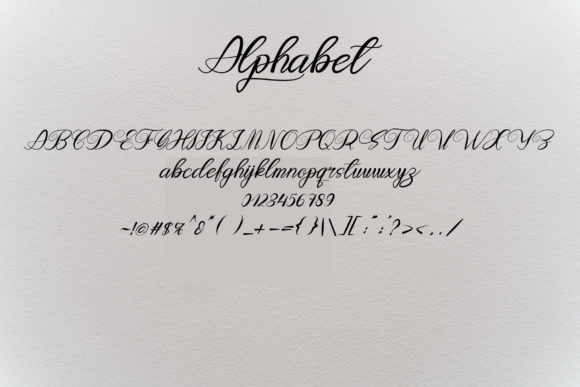 Alphabet
ABCDEFGHIJKLMNOPQRSTUVWXYZ
abcdefghijklmnopqrstuvwxyz
0123456789
~!@#$%^&*()_+-={}|\][:";'?><,./